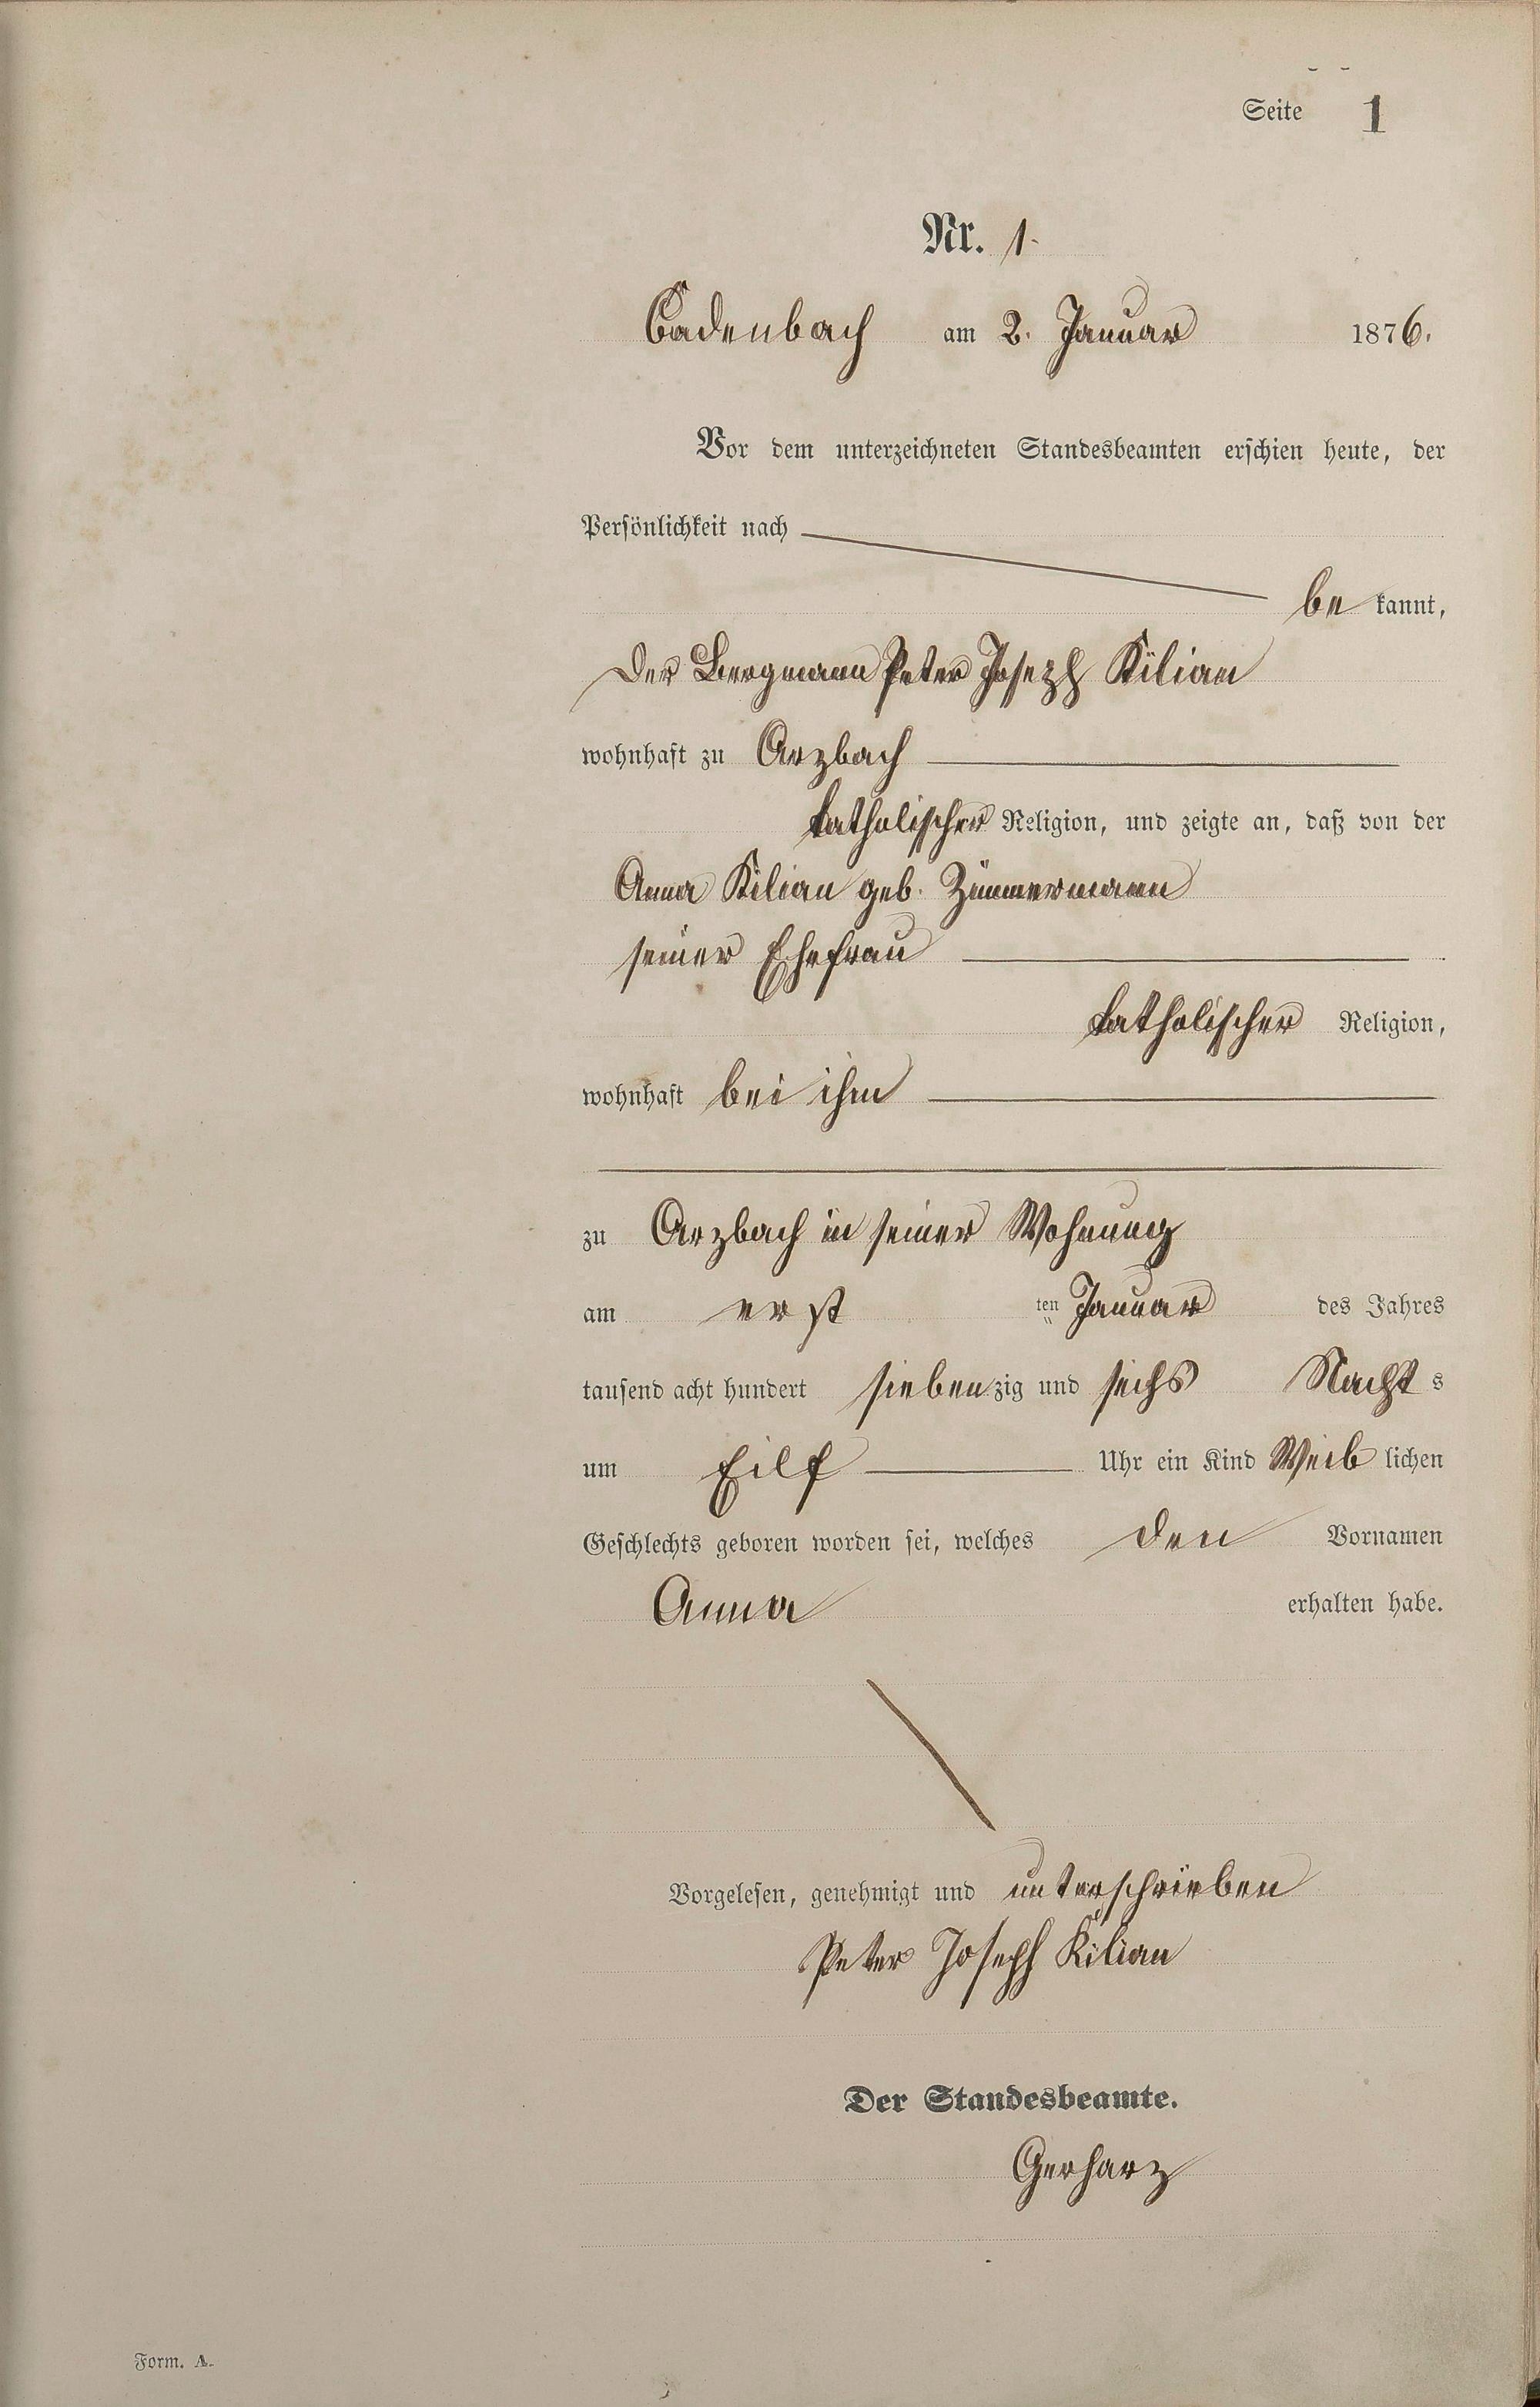 Seite 1
Nr. 1.
Cadenbach am 2. Januar 1876.
Vor dem unterzeichneten Standesbeamten erschien heute, der
Persönlichkeit nach
be kannt,
der Bergmann Peter Joseph Kilian
wohnhaft zu Arzbach
katholischer Religion, und zeigte an, daß von der
Anna Kilian geb. Zimmermann
seiner Ehefrau
katholischer Religion,
wohnhaft bei ihm
zu Arzbach in seiner Wohnung
am erst ten Januar des Jahres
tausend acht hundert sieben zig und sechs Nacht s
um Eilf Uhr ein Kind Weib lichen
Geschlechts geboren worden sei, welches den Vornamen
Anna erhalten habe.
Vorgelesen, genehmigt und unterschrieben
Peter Joseph Kilian
Der Standesbeamte.
Gerharz
Form. A.